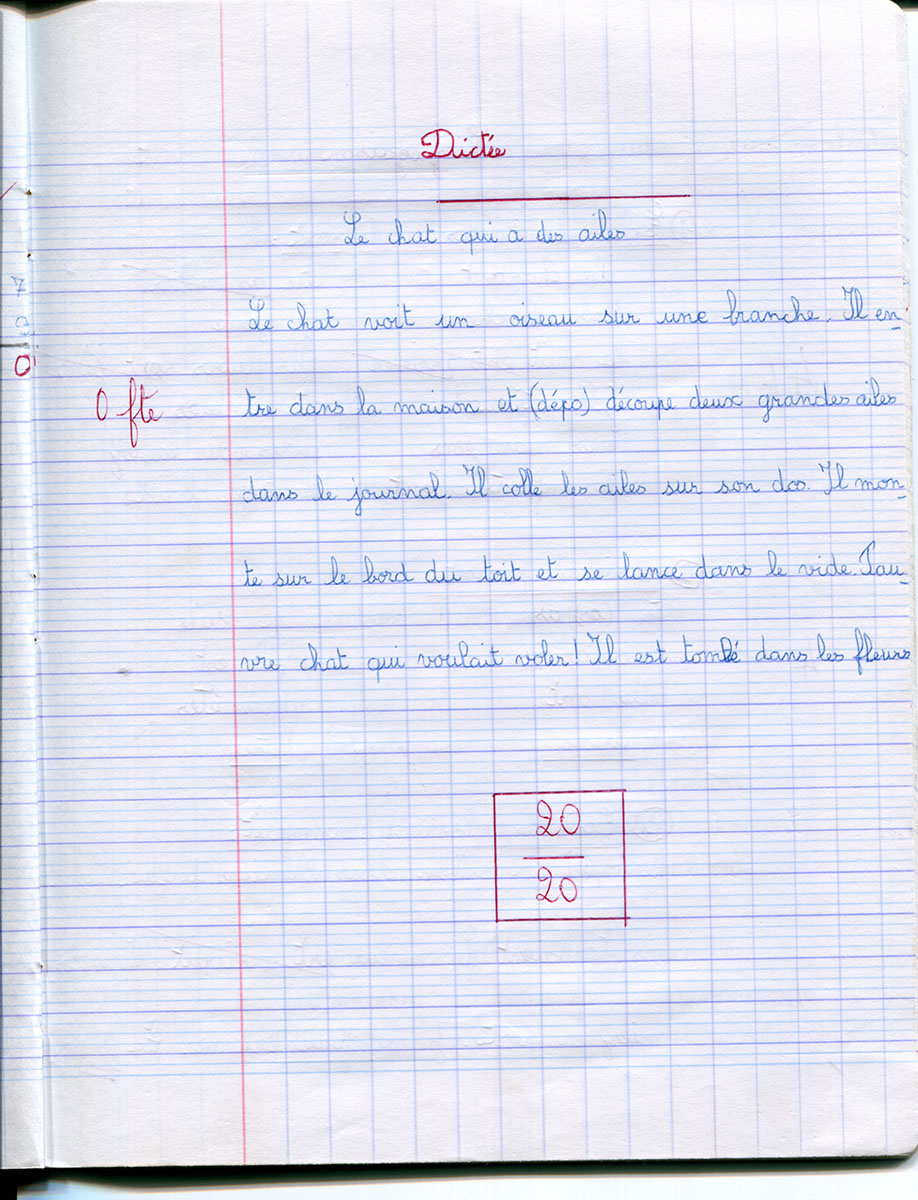 Dictée
Le chat qui a des ailes
7
0
Le chat voit un oiseau sur une branche. Il en-
0 fte
tre dans la maison et (dépo) découpe deux grandes ailes
dans le journal. Il colle les ailes sur son dos. Il mon-
te sur le bord du toit et se lance dans le vide. Pau-
vre chat qui voulait voler! Il est tombé dans les fleurs
20
20